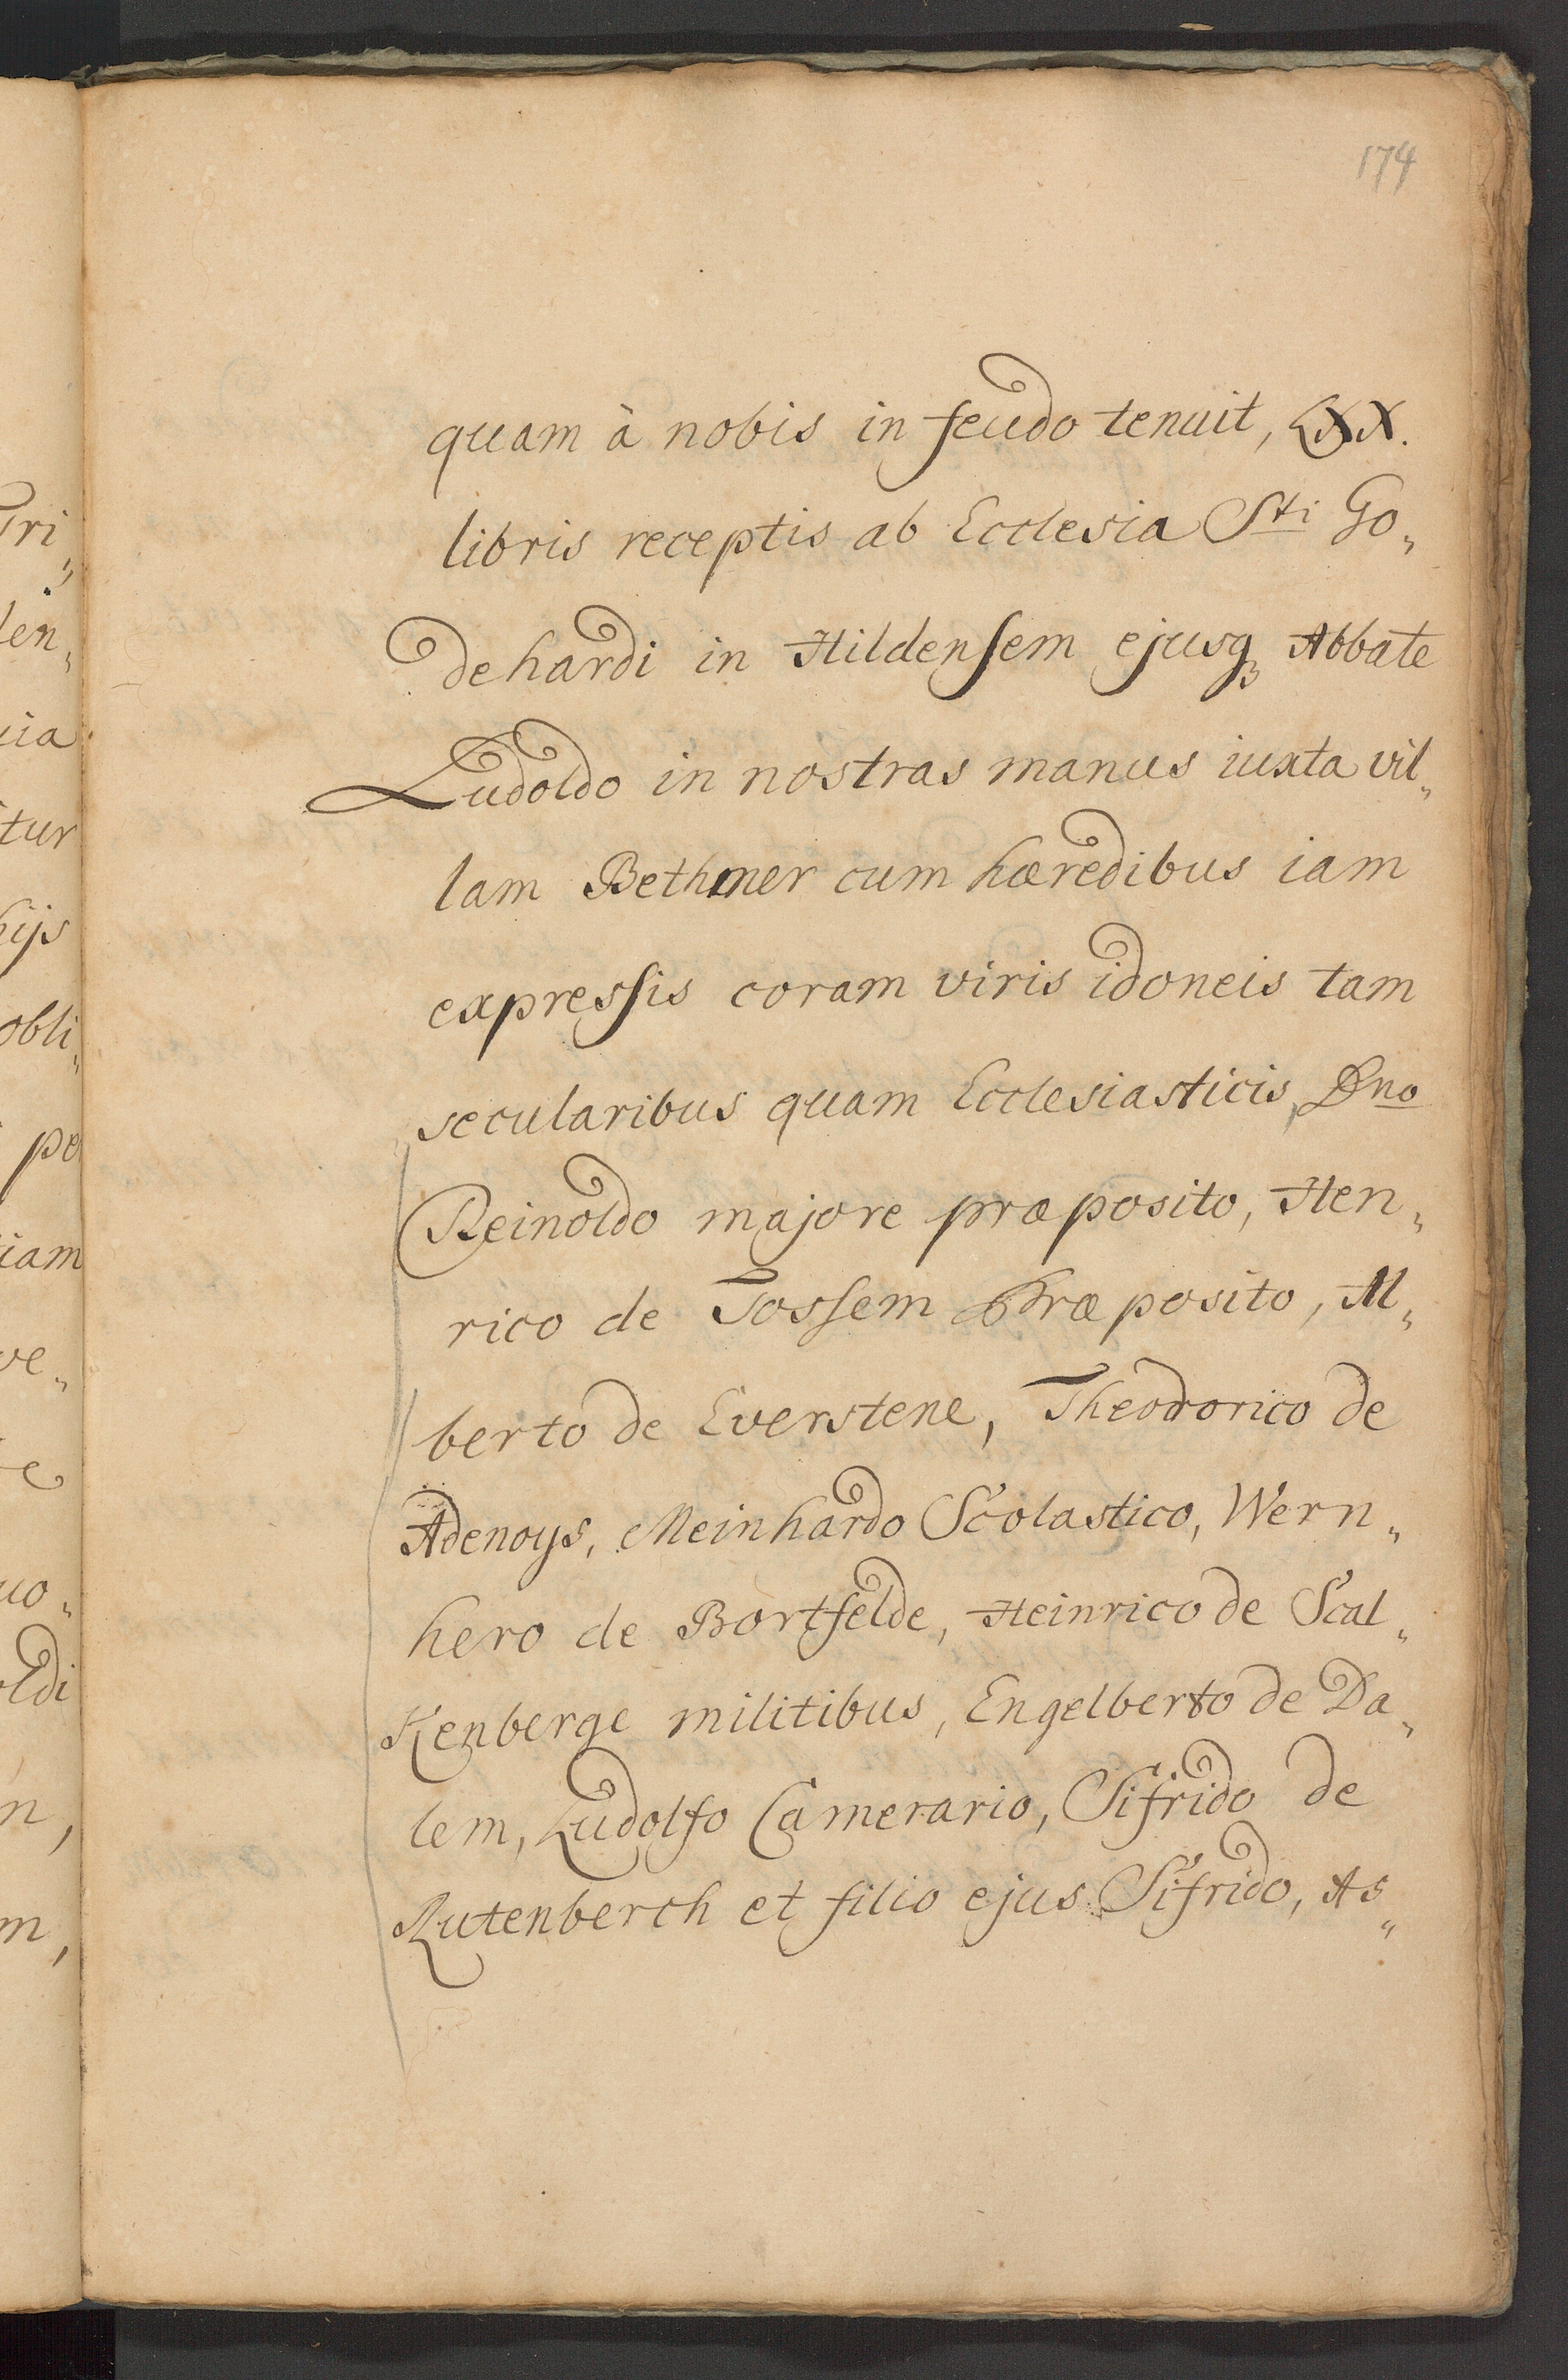 174
quam à nobis in feudo tenuit, LXX.
libris receptis ab Ecclesia Sti Go„
dehardi in Hildensem ejusqꝫ Abbate
Ludoldo in nostras manus iuxta vil„
lam Bethmer cum hæredibus iam
expressis coram viris idoneis tam
secularibus quam Ecclesiasticis, Dno
Reinoldo majore præposito, Hen„
rico de Tossem Præposito, Al„
berto de Everstene, Theodorico de
Adenoys, Meinhardo Scolastico, Wern„
hero de Bortfelde, Heinrico de Scal„
Kenberge militibus, Engelberto de Da„
lem, Ludolfo Camerario, Sifrido de
Rutenberch et filio ejus Sifrido, As„